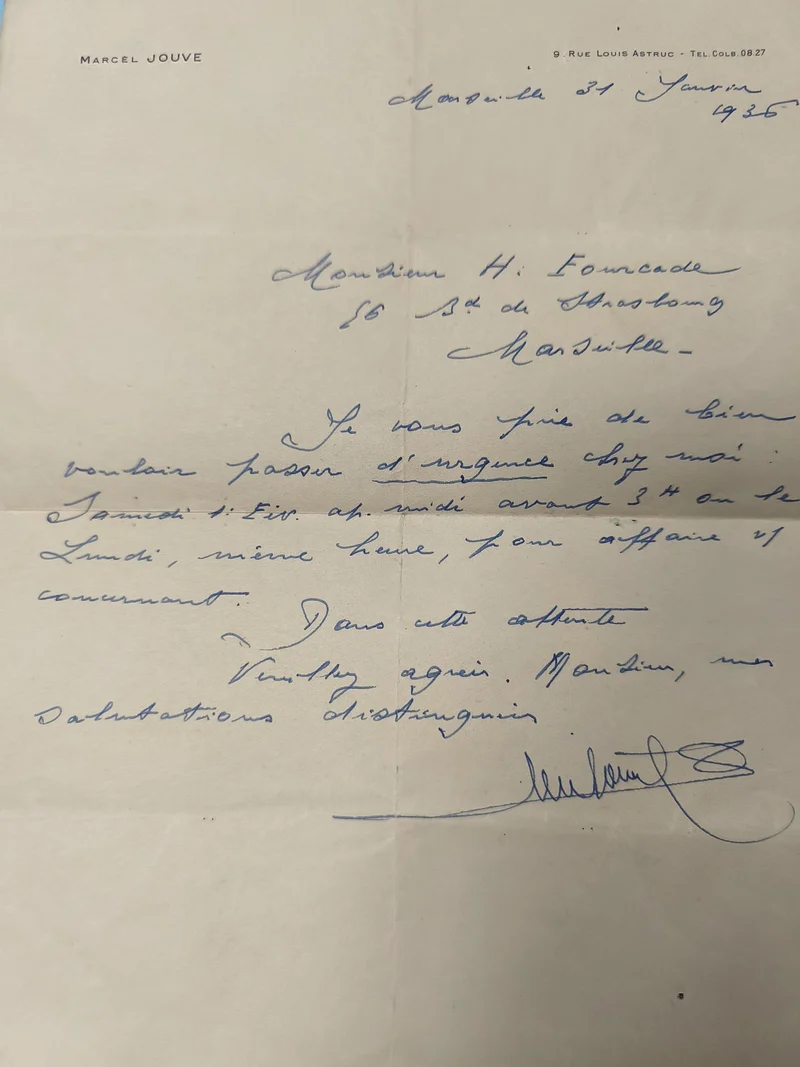 MARCEL JOUVE
9. RUE LOUIS ASTRUC - TEL. COLB. 08.27
Marseille 31 Janvier
1936
Monsieur H. Fourcade
56 Bd de Strasbourg
Marseille -
Je vous prie de bien
vouloir passer d'urgence chez moi :
Samedi 1: Fév. ap. midi avant 3H ou le
Lundi, même heure, pour affaire vs
concernant.
Dans cette attente
Veuillez agréer. Monsieur, mes
salutations distinguées